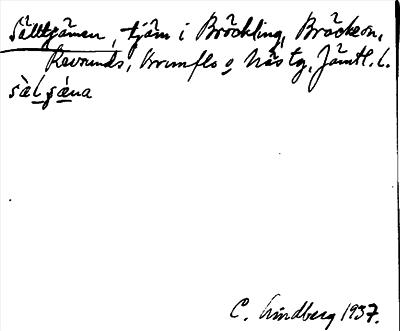 Sälltjärnen, tjärn i Bräckling, Bräckeon,
Revsunds, Brunflo o Näs tg, Jämtl. l.
sàlʂǽna
C. Lindberg 1937.